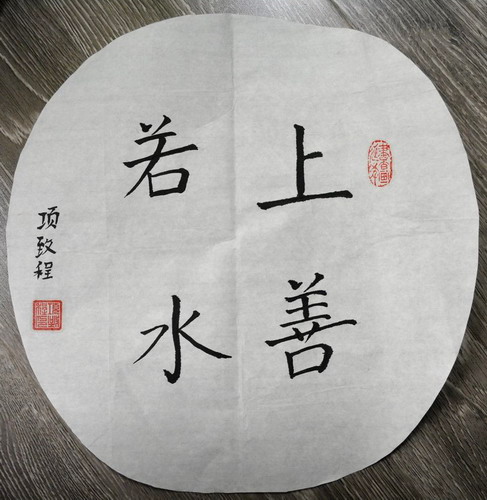 上善
若水
项致程